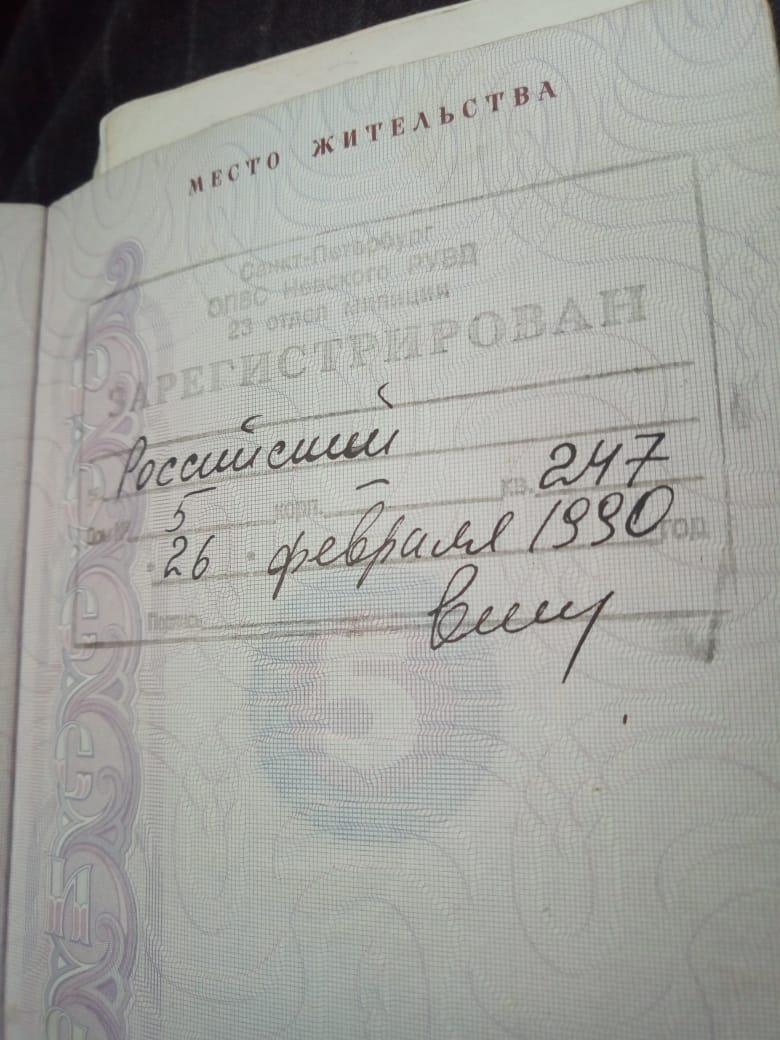 МЕСТО ЖИТЕЛЬСТВА
Санкт-Петербург
ОПВС Невского РУВД
23 отдел милиции
ЗАРЕГИСТРИРОВАН
Российский
Дом № 5 корп. – кв. 247
26 февраля 1990 год
Подпись
5